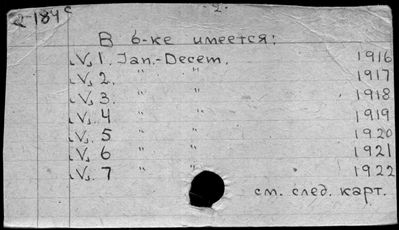 2-184c -2-
В б-ке имеется:
V. 1. Jan.-Decem. 1916
V. 2. " " 1917
V. 3. " " 1918
V. 4 " " 1919
V. 5 " " 1920
V. 6 " " 1921
V. 7 " " 1922
см. след. карт.